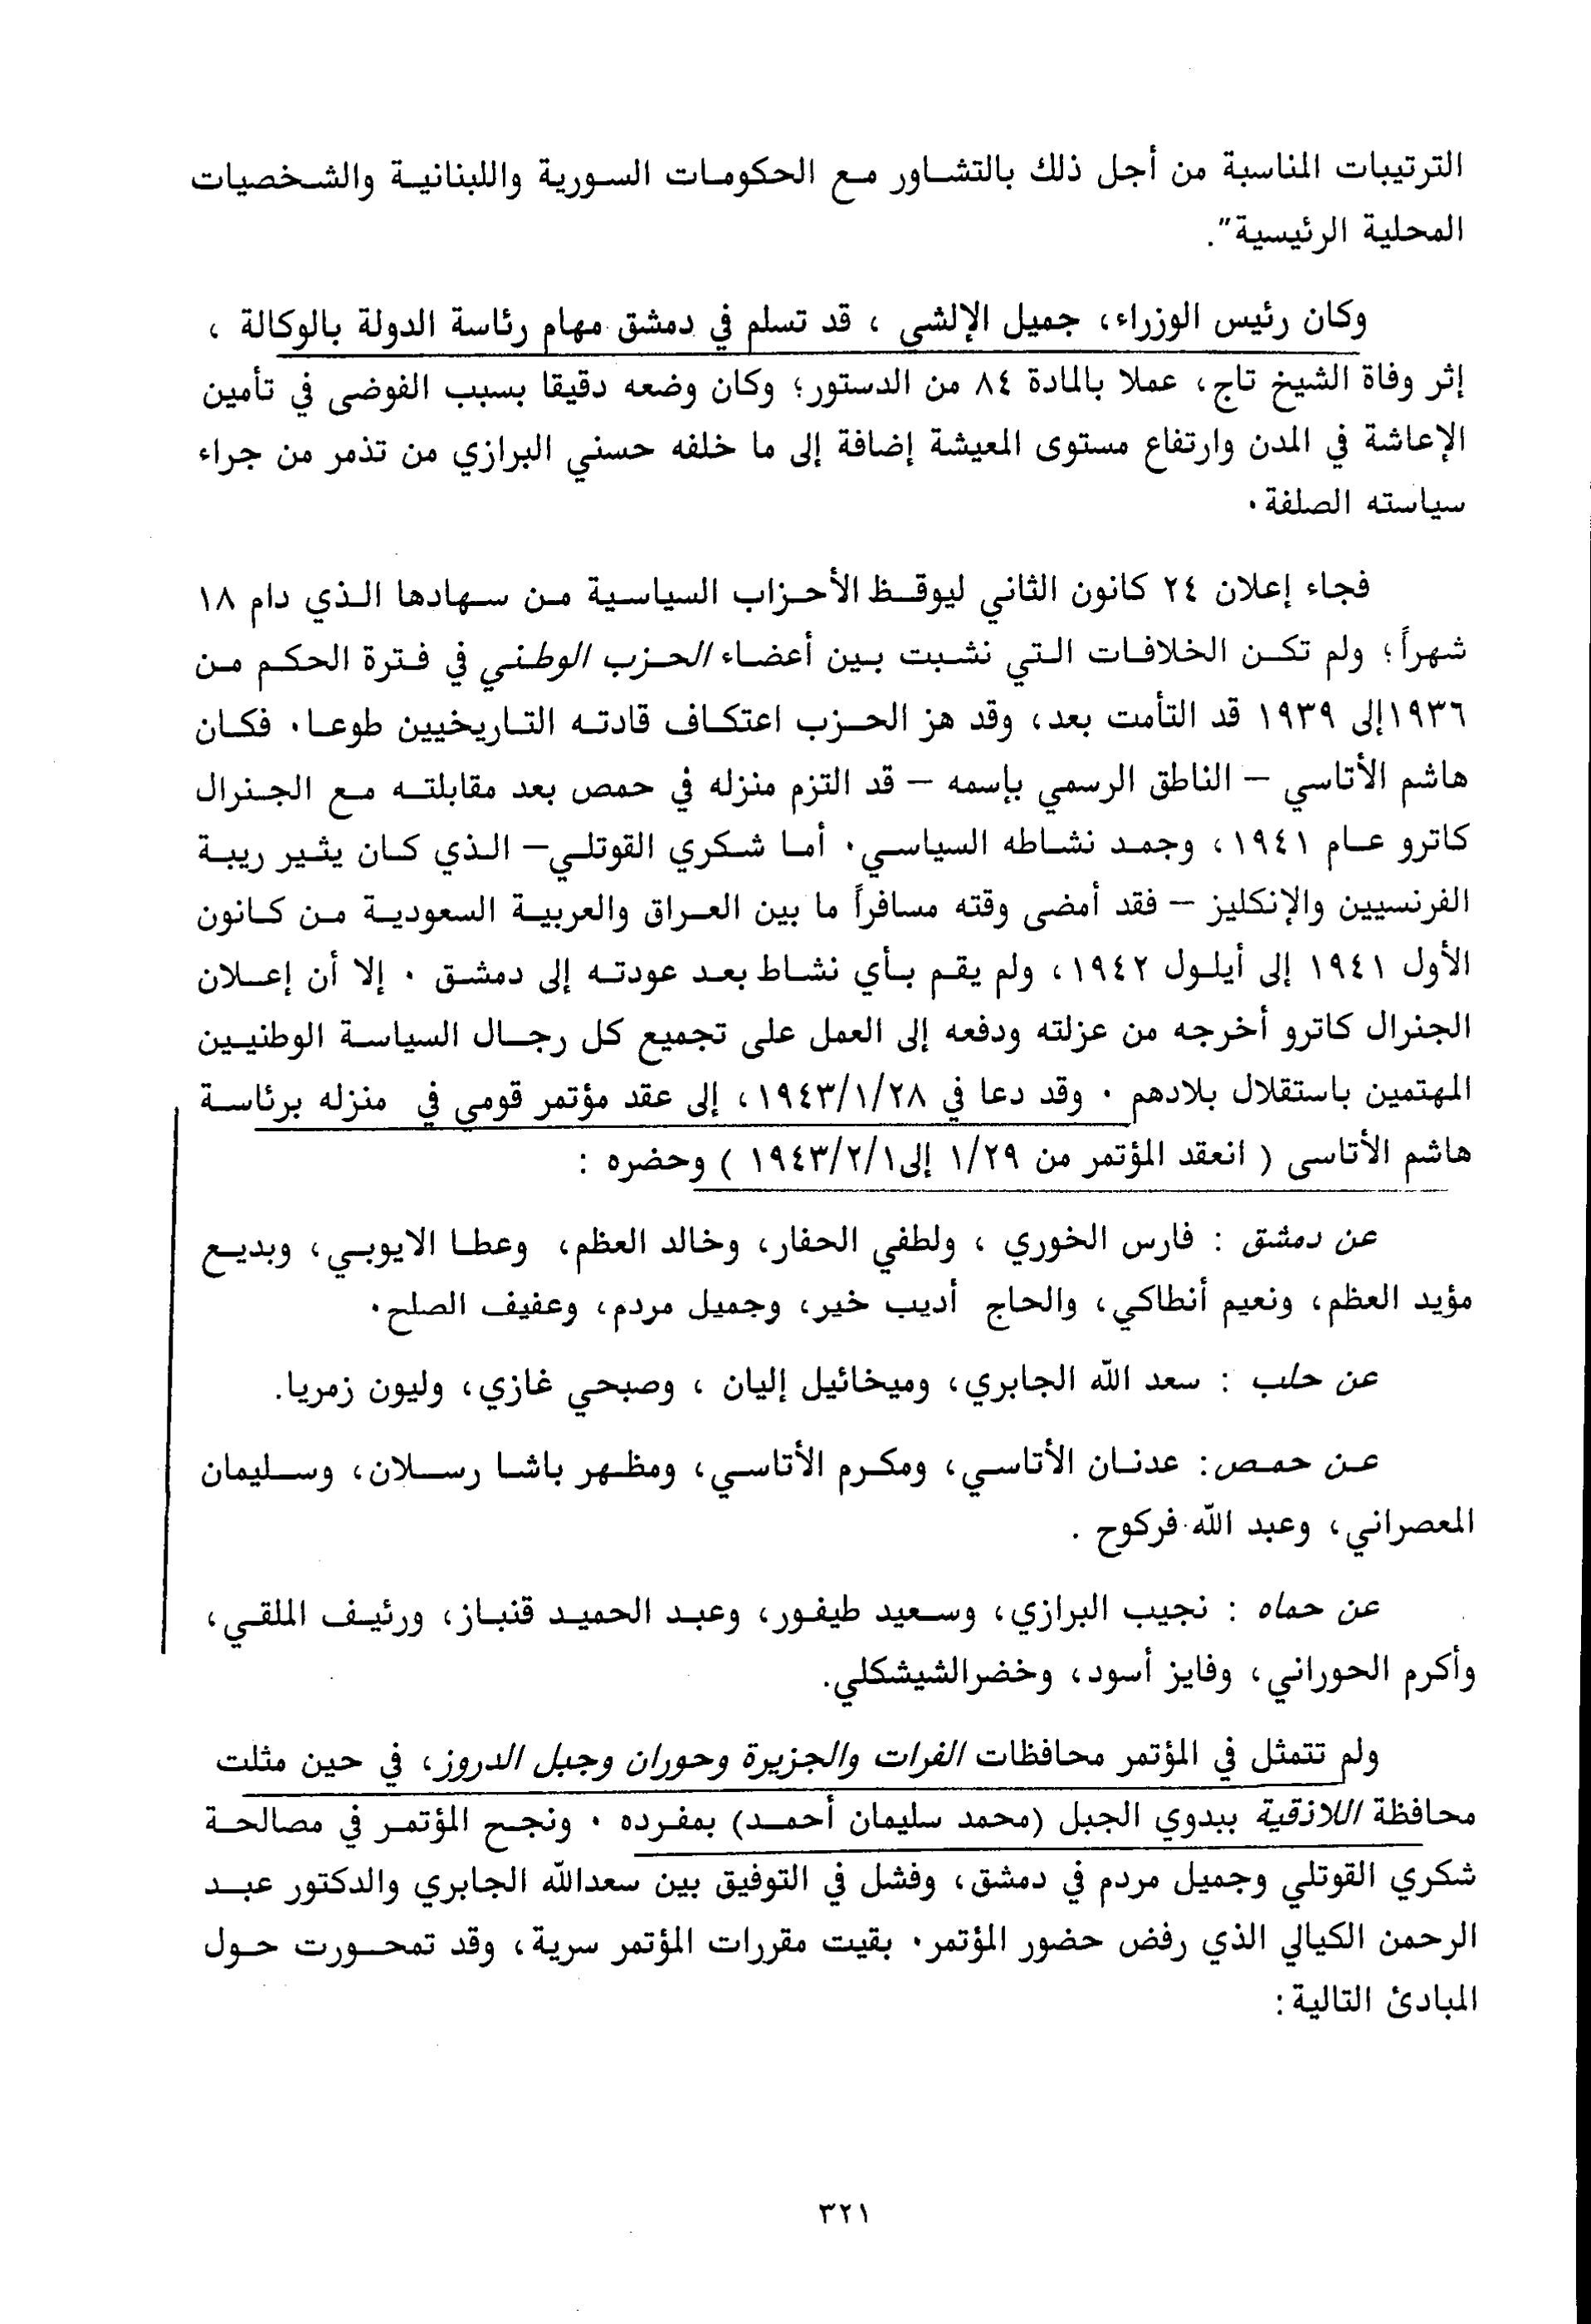 الترتيبات المناسبة من أجل ذلك بالتشاور مع الحكومات السورية واللبنانية والشخصيات
المحلية الرئيسية".
وكان رئيس الوزراء، جميل الإلشي ، قد تسلم في دمشق مهام رئاسة الدولة بالوكالة ،
إثر وفاة الشيخ تاج، عملا بالمادة ٨٤ من الدستور؛ وكان وضعه دقيقا بسبب الفوضى في تأمين
الإعاشة في المدن وارتفاع مستوى المعيشة إضافة إلى ما خلفه حسني البرازي من تذمر من جراء
سياسته الصلفة.
فجاء إعلان ٢٤ كانون الثاني ليوقظ الأحزاب السياسية من سهادها الذي دام ١٨
شهراً؛ ولم تكن الخلافات التي نشبت بين أعضاء الحزب الوطني في فترة الحكم من
١٩٣٦إلى ١٩٣٩ قد التأمت بعد، وقد هز الحزب اعتكاف قادته التاريخيين طوعا. فكان
هاشم الأتاسي – الناطق الرسمي بإسمه – قد التزم منزله في حمص بعد مقابلته مع الجنرال
كاترو عام ١٩٤١، وجمد نشاطه السياسي. أما شكري القوتلي– الذي كان يثير ريبة
الفرنسيين والإنكليز – فقد أمضى وقته مسافراً ما بين العراق والعربية السعودية من كانون
الأول ١٩٤١ إلى أيلول ١٩٤٢، ولم يقم بأي نشاط بعد عودته إلى دمشق . إلا أن إعلان
الجنرال كاترو أخرجه من عزلته ودفعه إلى العمل على تجميع كل رجال السياسة الوطنيين
المهتمين باستقلال بلادهم . وقد دعا في ١٩٤٣/١/٢٨، إلى عقد مؤتمر قومي في منزله برئاسة
هاشم الأتاسى ( انعقد المؤتمر من ١/٢٩ إلى١٩٤٣/٢/١ ) وحضره :
عن دمشق : فارس الخوري ، ولطفي الحفار، وخالد العظم، وعطا الايوبي، وبديع
مؤيد العظم، ونعيم أنطاكي، والحاج أديب خير، وجميل مردم، وعفيف الصلح.
عن حلب : سعد الله الجابري، وميخائيل إليان ، وصبحي غازي، وليون زمريا.
عن حمص: عدنان الأتاسي، ومكرم الأتاسي، ومظهر باشا رسلان، وسليمان
المعصراني، وعبد الله فركوح .
عن حماه : نجيب البرازي، وسعيد طيفور، وعبد الحميد قنباز، ورئيف الملقي،
وأكرم الحوراني، وفايز أسود، وخضرالشيشكلي.
ولم تتمثل في المؤتمر محافظات الفرات والجزيرة وحوران وجبل الدروز، في حين مثلت
محافظة اللاذقية ببدوي الجبل (محمد سليمان أحمد) بمفرده . ونجح المؤتمر في مصالحة
شكري القوتلي وجميل مردم في دمشق، وفشل في التوفيق بين سعدالله الجابري والدكتور عبد
الرحمن الكيالي الذي رفض حضور المؤتمر. بقيت مقررات المؤتمر سرية، وقد تمحورت حول
المبادئ التالية:
٣٢١